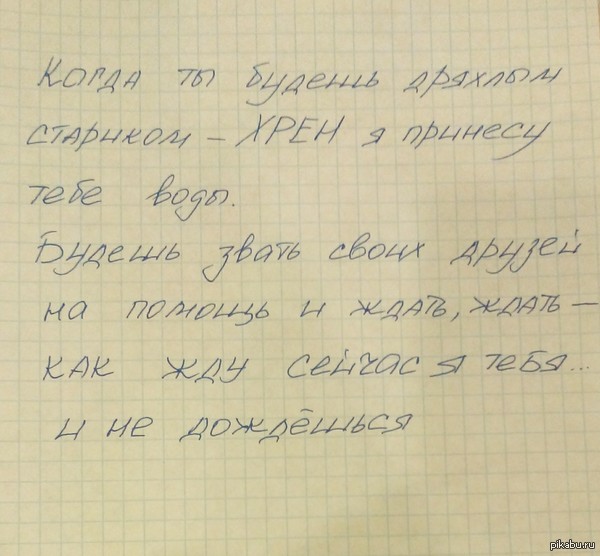 Когда ты будешь дряхлым
стариком – ХРЕН я принесу
тебе воды.
Будешь звать своих друзей
на помощь и ждать, ждать –
как жду сейчас я тебя...
и не дождёшься
pikabu.ru